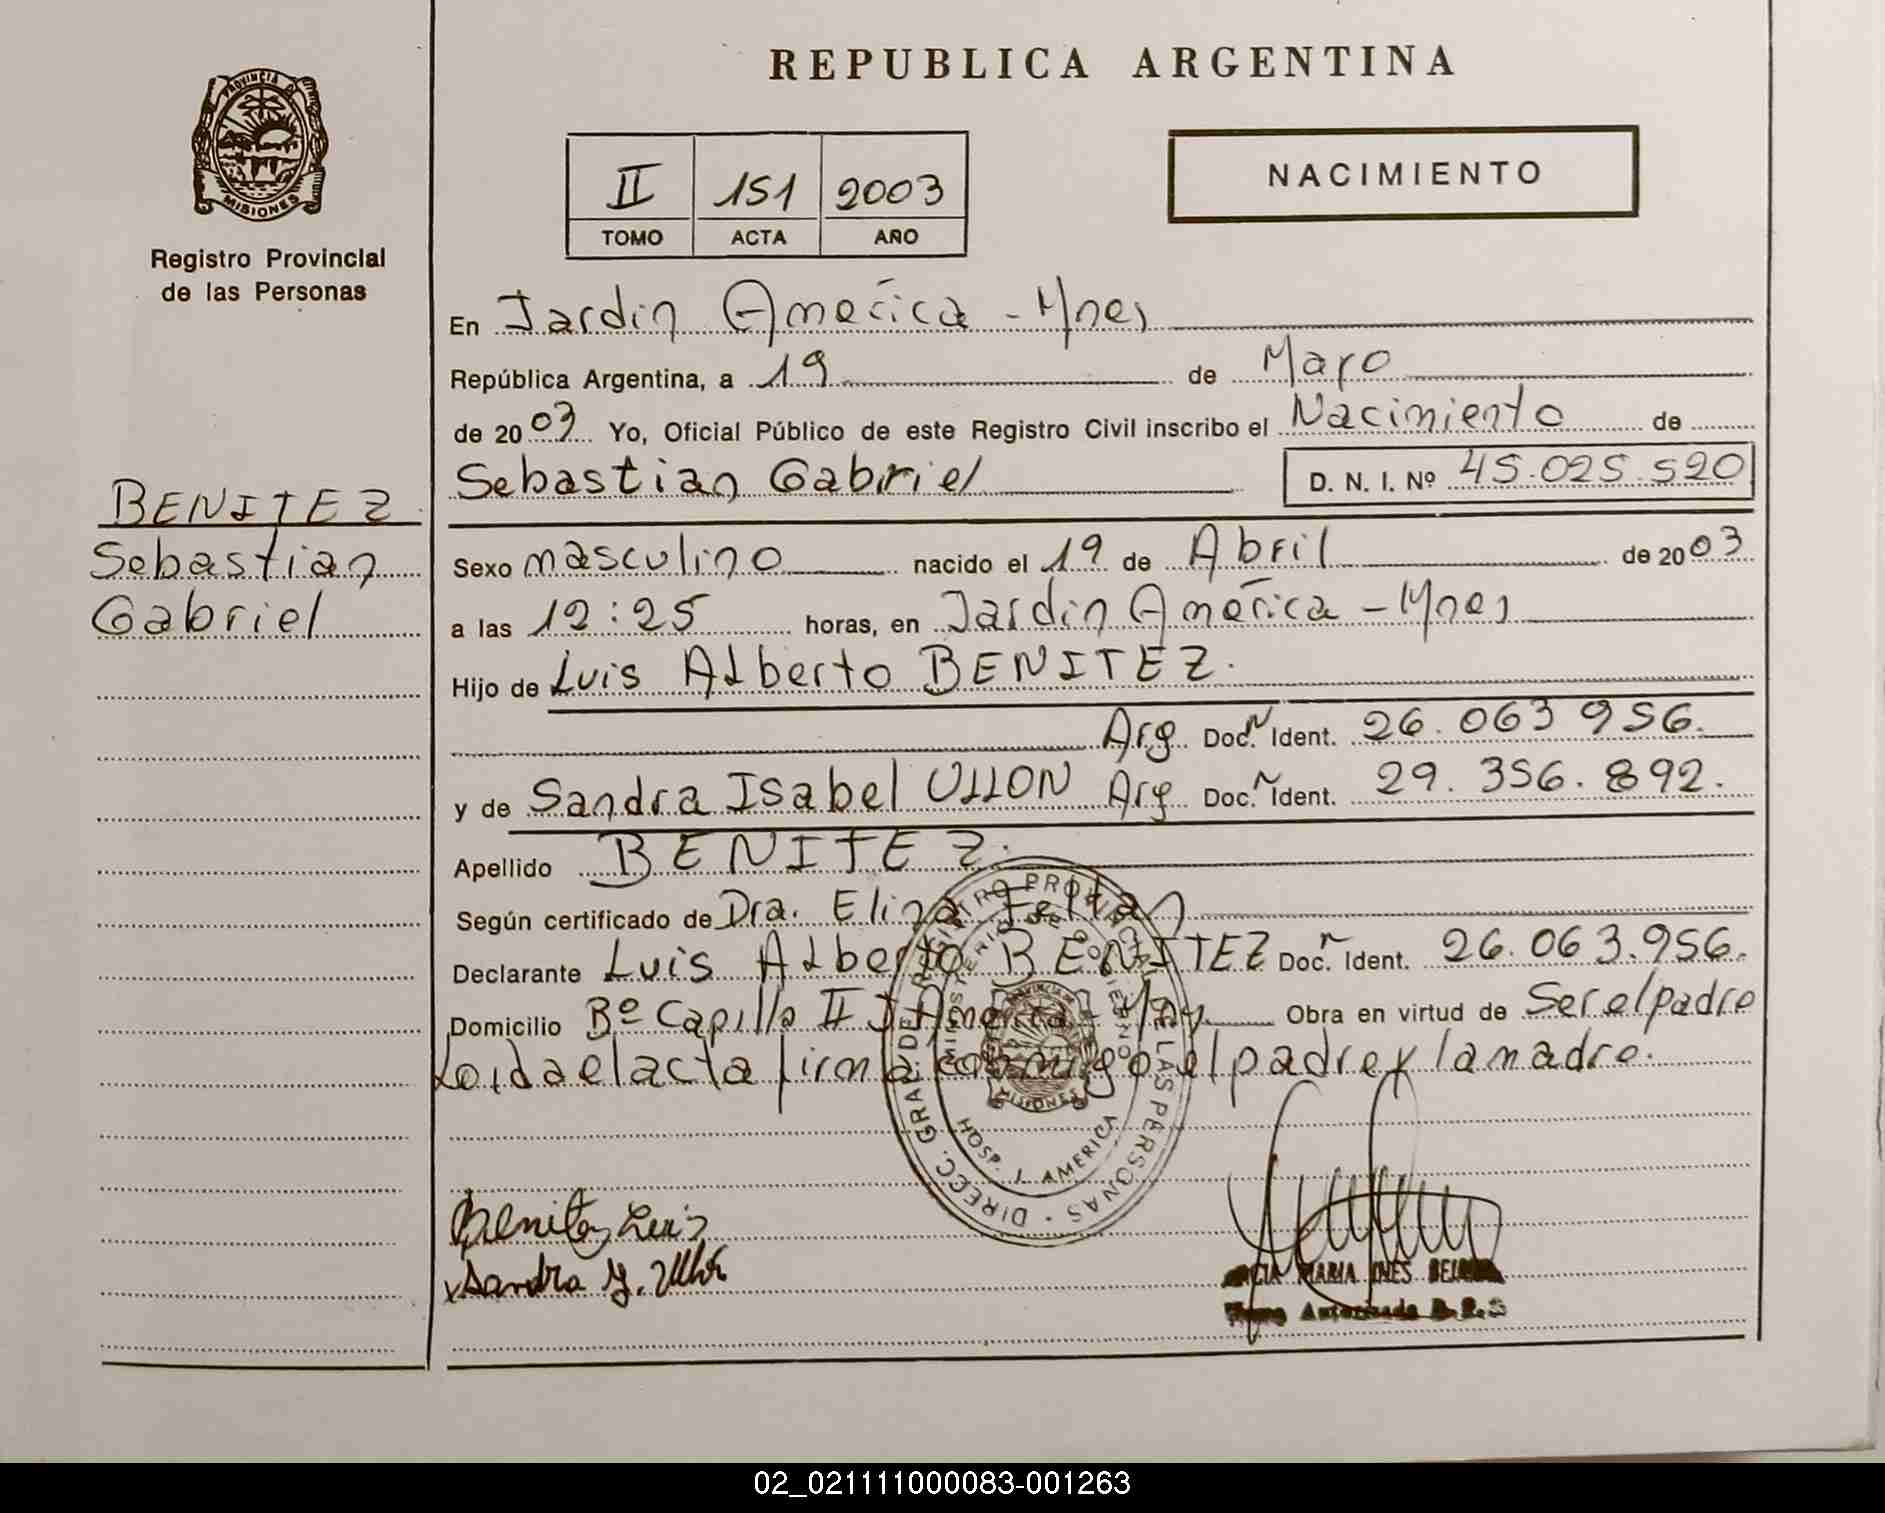 REPUBLICA ARGENTINA
PROVINCIA DE
MISIONES
Registro Provincial
de las Personas
II 151 2003
TOMO ACTA AÑO
NACIMIENTO
En Jardin America - Mnes
República Argentina, a 19 de Mayo
de 2003 Yo, Oficial Público de este Registro Civil inscribo el Nacimiento de
Sebastian Gabriel D. N. I. Nº 45.025.520
BENITEZ
Sebastian
Gabriel
Sexo masculino nacido el 19 de Abril de 2003
a las 12:25 horas, en Jardin America - Mnes
Hijo de Luis Alberto BENITEZ.
Arg Doc. Ident. 26.063 956.
y de Sandra Isabel ULLON Arg Doc. Ident. 29.356.892.
Apellido BENITEZ.
Según certificado de Dra. Elina Feltan
Declarante Luis Alberto BENITEZ Doc. Ident. 26.063.956.
Domicilio Bº Capilla II J America - Mnes Obra en virtud de Ser el padre
Leida el acta firma conmigo el padre y la madre.
DIRECC. GRAL. DE REGISTRO PROVINCIAL DE LAS PERSONAS
MINISTERIO DE GOBIERNO
PROVINCIA DE
MISIONES
HOSP. J. AMERICA
Benitez Luis
Sandra Y. Ullón
MARIA INES
Autorizada
02_021111000083-001263